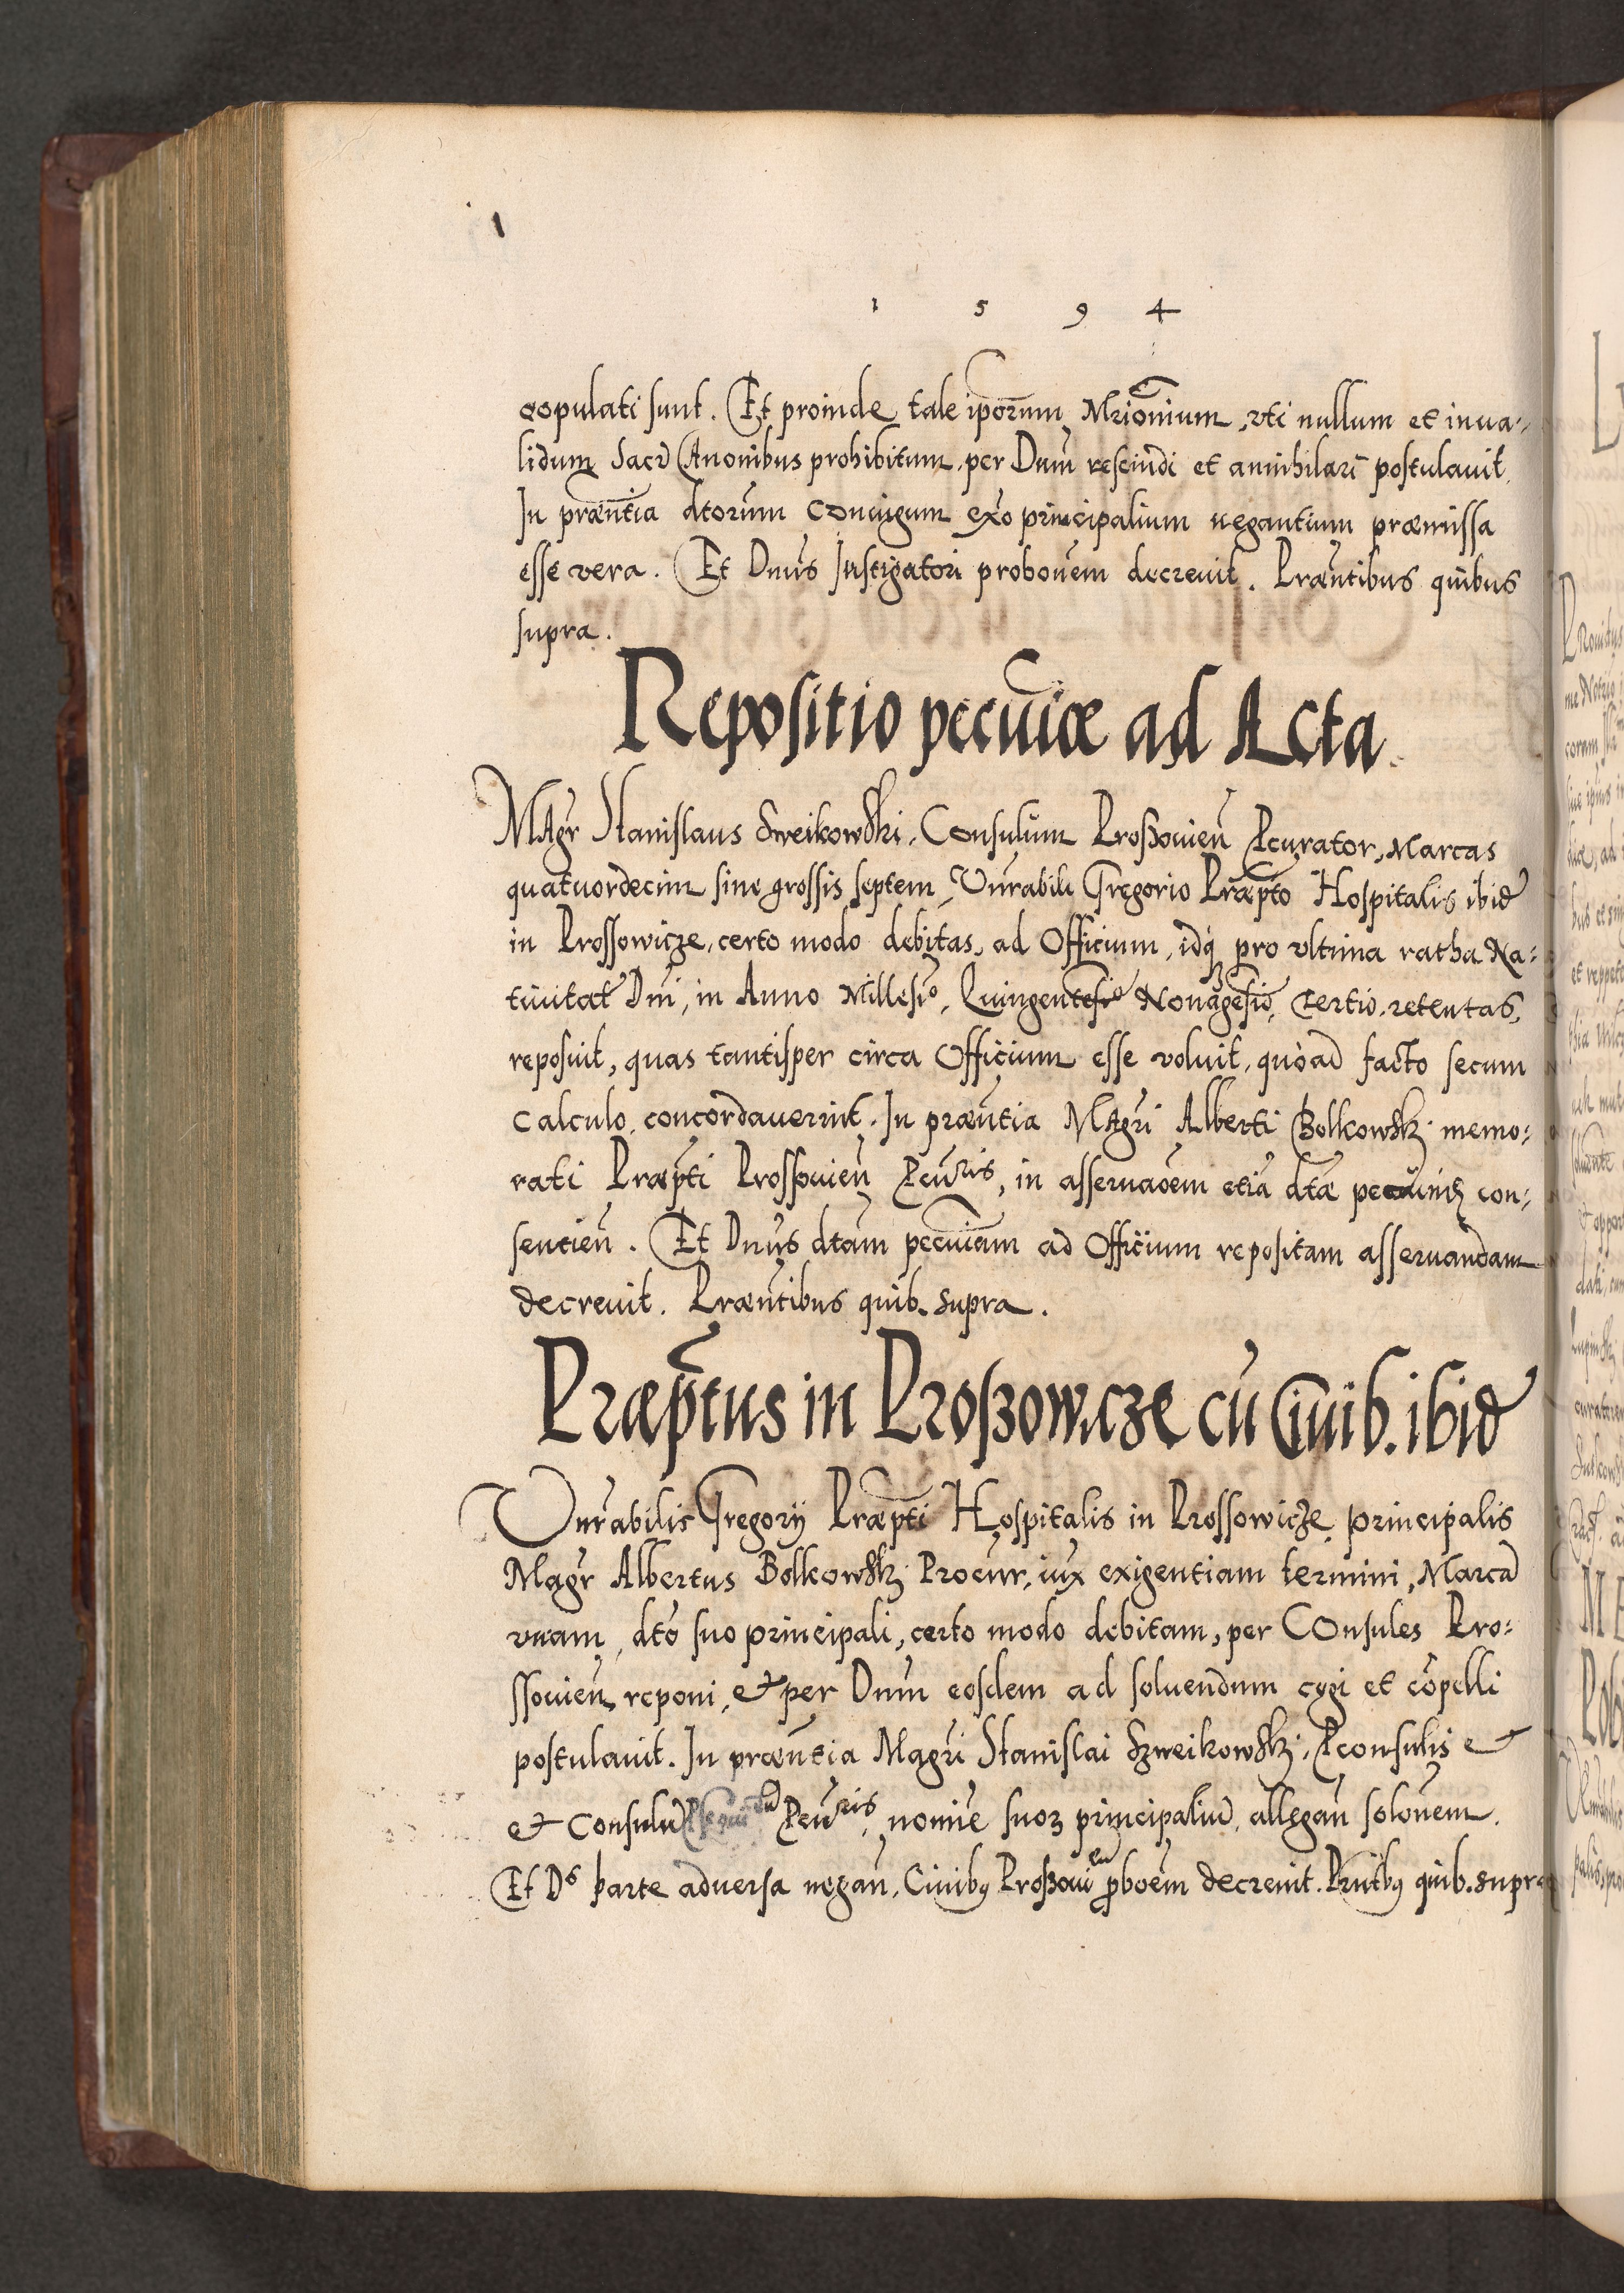 1 5 9 4
copulati sunt. Et proinde tale ip̄orum Mrīonium, vti nullum et inua-
lidum Sacr̄ CAnonibus prohibitum, per Dnum rescindi et annihilari postulauit.
In præn̄tia dtorum Coniugum ex̄o principalium negantium præmissa
esse vera. Et Dnus Instigatori probōem decreuit. Præn̄tibus quibus
supra.
Repositio pecūiæ ad Acta.
MAgr̄ Stanislaus Szweikowski, Consulum Proßouien̄ Pcurator, Marcas
quatuordecim sine grossis septem, Vnrabili Gregorio Præpt̄o Hospitalis ibid
in Prossowicze, certo modo debitas, ad Officium, idq́ pro vltima ratha Na-
tiuitat Dni, in Anno Millesi͞o, Quingentesi͞o Nonagesi͞o, tertio, retentas,
reposuit, quas tantisper circa Officium esse voluit, quoad facto secum
calculo, concordauerint. In præn̄tia MAgri Alberti Bolkowsk: memo-
rati Præpti Prossouien̄ Pcuris, in asseruāoem etiā dtæ pecuniæ con-
sentien̄. Et Dnus dtam pecūiam ad Officium repositam asseruandam
decreuit. Præn̄tibus quib. supra.
Præp̄tus in Proßowicze cū Ciuib. ibid
Vnr̄abilis Gregorij Præpti Hospitalis in Prossowicze principalis
Magr̄ Albertus Bolkowsk: Procur, iux exigentiam termini, Marcā
vnam, dto suo principali, certo modo debitam, per COnsules Pro-
ssouien̄ reponi, et per Dnum eosdem ad soluendum cogi et cōpelli
postulauit. In præn̄tia Magri Stanislai Szweikowsk: Pconsulis et
et Consulū Pcuris, nomīe suoꝝ principaliū, allegan̄ solōuem.
Et Ds parte aduersa negan̄, Ciuibꝰ Proßouien p̱bōem decreuit. Prn̄tibꝰ quib. supra